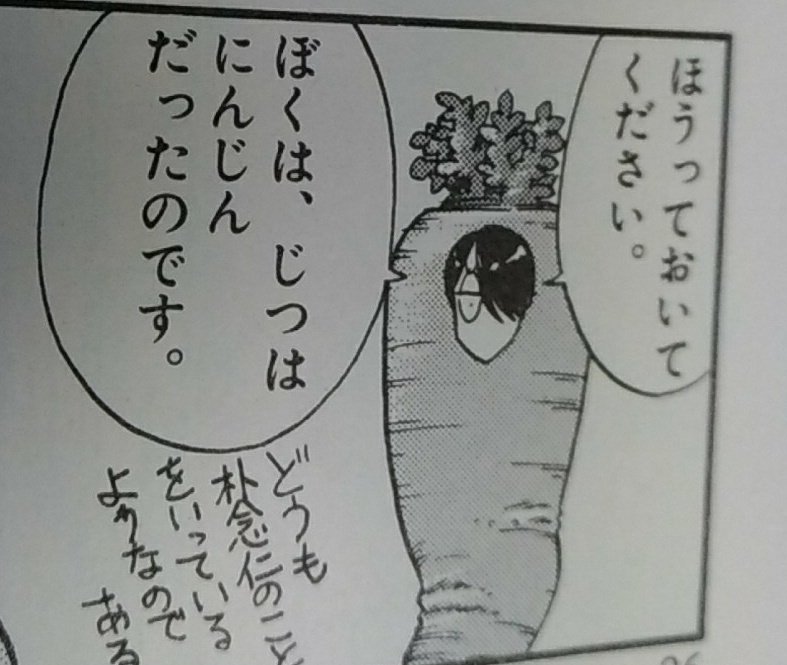 ほうっておいて
ください。
ぼくは、じつは
にんじん
だったのです。
どうも
朴念仁のこと
をいっている
ようなので
ある